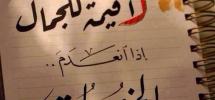 لا قيمة للجمال
إذا انعدَمَ ..